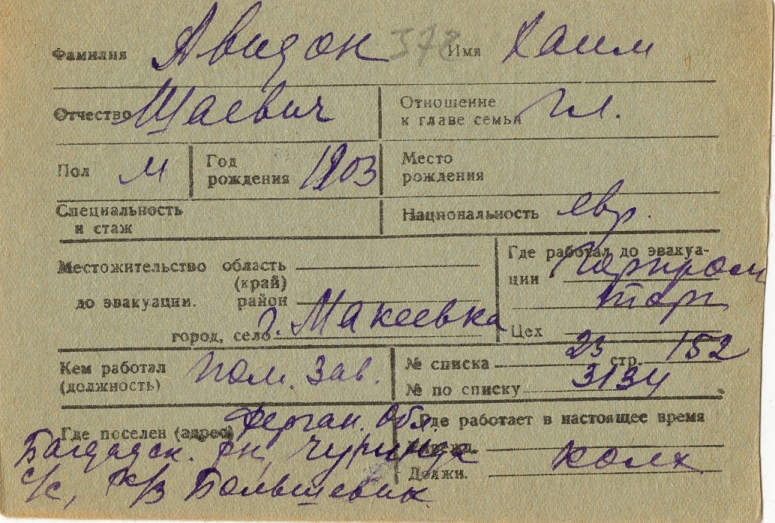 Фамилия Авидон 378 Имя Хаим
Отчество Шаевич Отношение к главе семьи Гл.
Пол М Год рождения 1903 Место рождения
Специальность и стаж Национальность евр.
Местожительство область (край)
до эвакуации. район
город, село г. Макеевка
Где работал до эвакуации
торг
Цех
Кем работал (должность) Пом. зав.
№ списка 23 стр. 152
№ по списку 3134
Где поселен (адрес) Ферган. Обл.
Багдадск. рн,
с/с, к/з Большевик
Где работает в настоящее время
Должн. колх